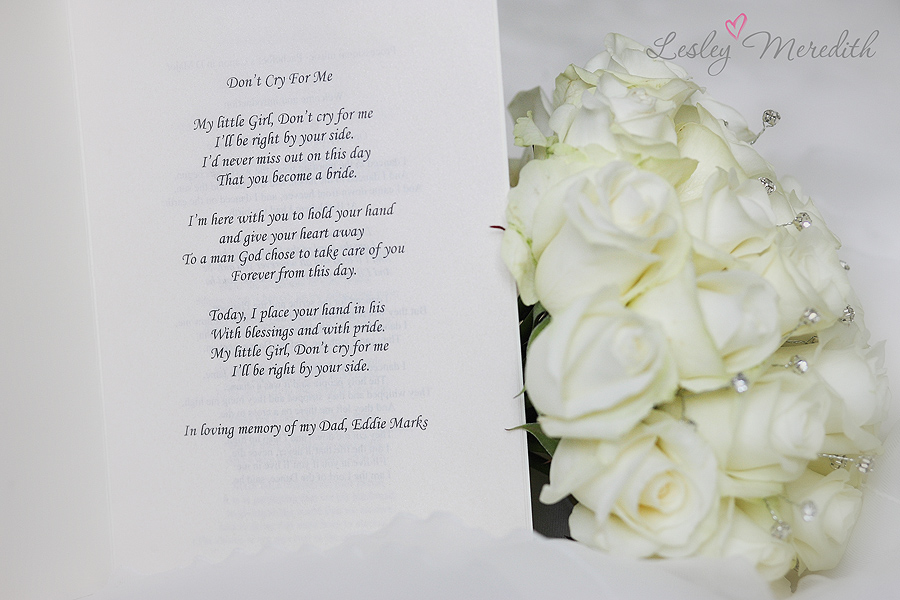 Lesley Meredith
Don't Cry For Me
My little Girl, Don't cry for me
I'll be right by your side.
I'd never miss out on this day
That you become a bride.
I'm here with you to hold your hand
and give your heart away
To a man God chose to take care of you
Forever from this day.
Today, I place your hand in his
With blessings and with pride.
My little Girl, Don't cry for me
I'll be right by your side.
In loving memory of my Dad, Eddie Marks